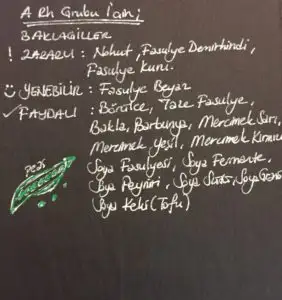 A Rh Grubu İçin;
BAKLAGİLLER
! ZARARLI : Nohut, Fasulye Demirhindi,
Fasulye Kuru.
YENEBİLİR : Fasulye Beyaz
✓ FAYDALI : Börülce, Taze Fasulye,
Bakla, Barbunya, Mercimek Sarı,
Mercimek Yeşil, Mercimek Kırmızı
Soya Fasulyesi, Soya Fermente,
Soya Peyniri, Soya Sütü, Soya
Soya Keki (Tofu)
peas